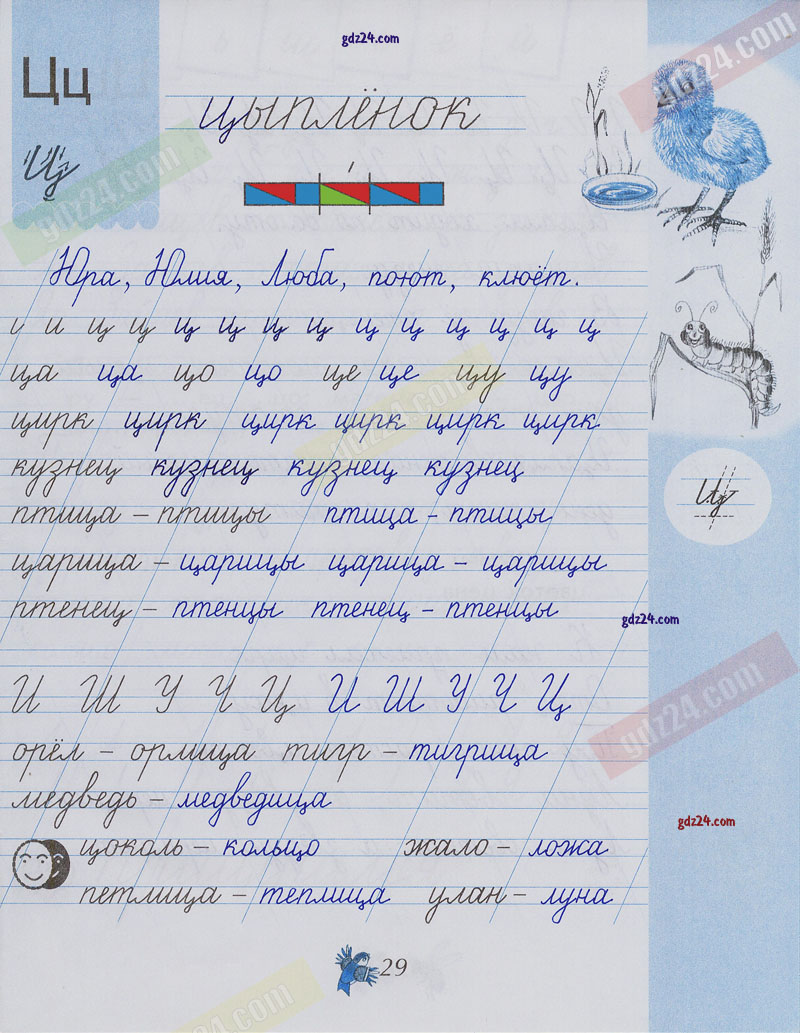 gdz24.com
Цц
Цц
цыплёнок
gdz24.com
gdz24.com
Юра, Юлия, Люба, поют, клюёт.
и и ц ц ц ц ц ц ц ц ц ц ц ц
ца ца цо цо це це цу цу
цирк цирк цирк цирк цирк цирк
gdz24.com
кузнец кузнец кузнец кузнец
Ц
птица – птицы птица – птицы
царица – царицы царица – царицы
птенец – птенцы птенец – птенцы
gdz24.com
И Ш У Ч Ц И Ш У Ч Ц
gdz24.com
орёл – орлица тигр – тигрица
медведь – медведица
gdz24.com
цоколь – кольцо жало – ложа
петлица – теплица улан – луна
29
gdz24.com